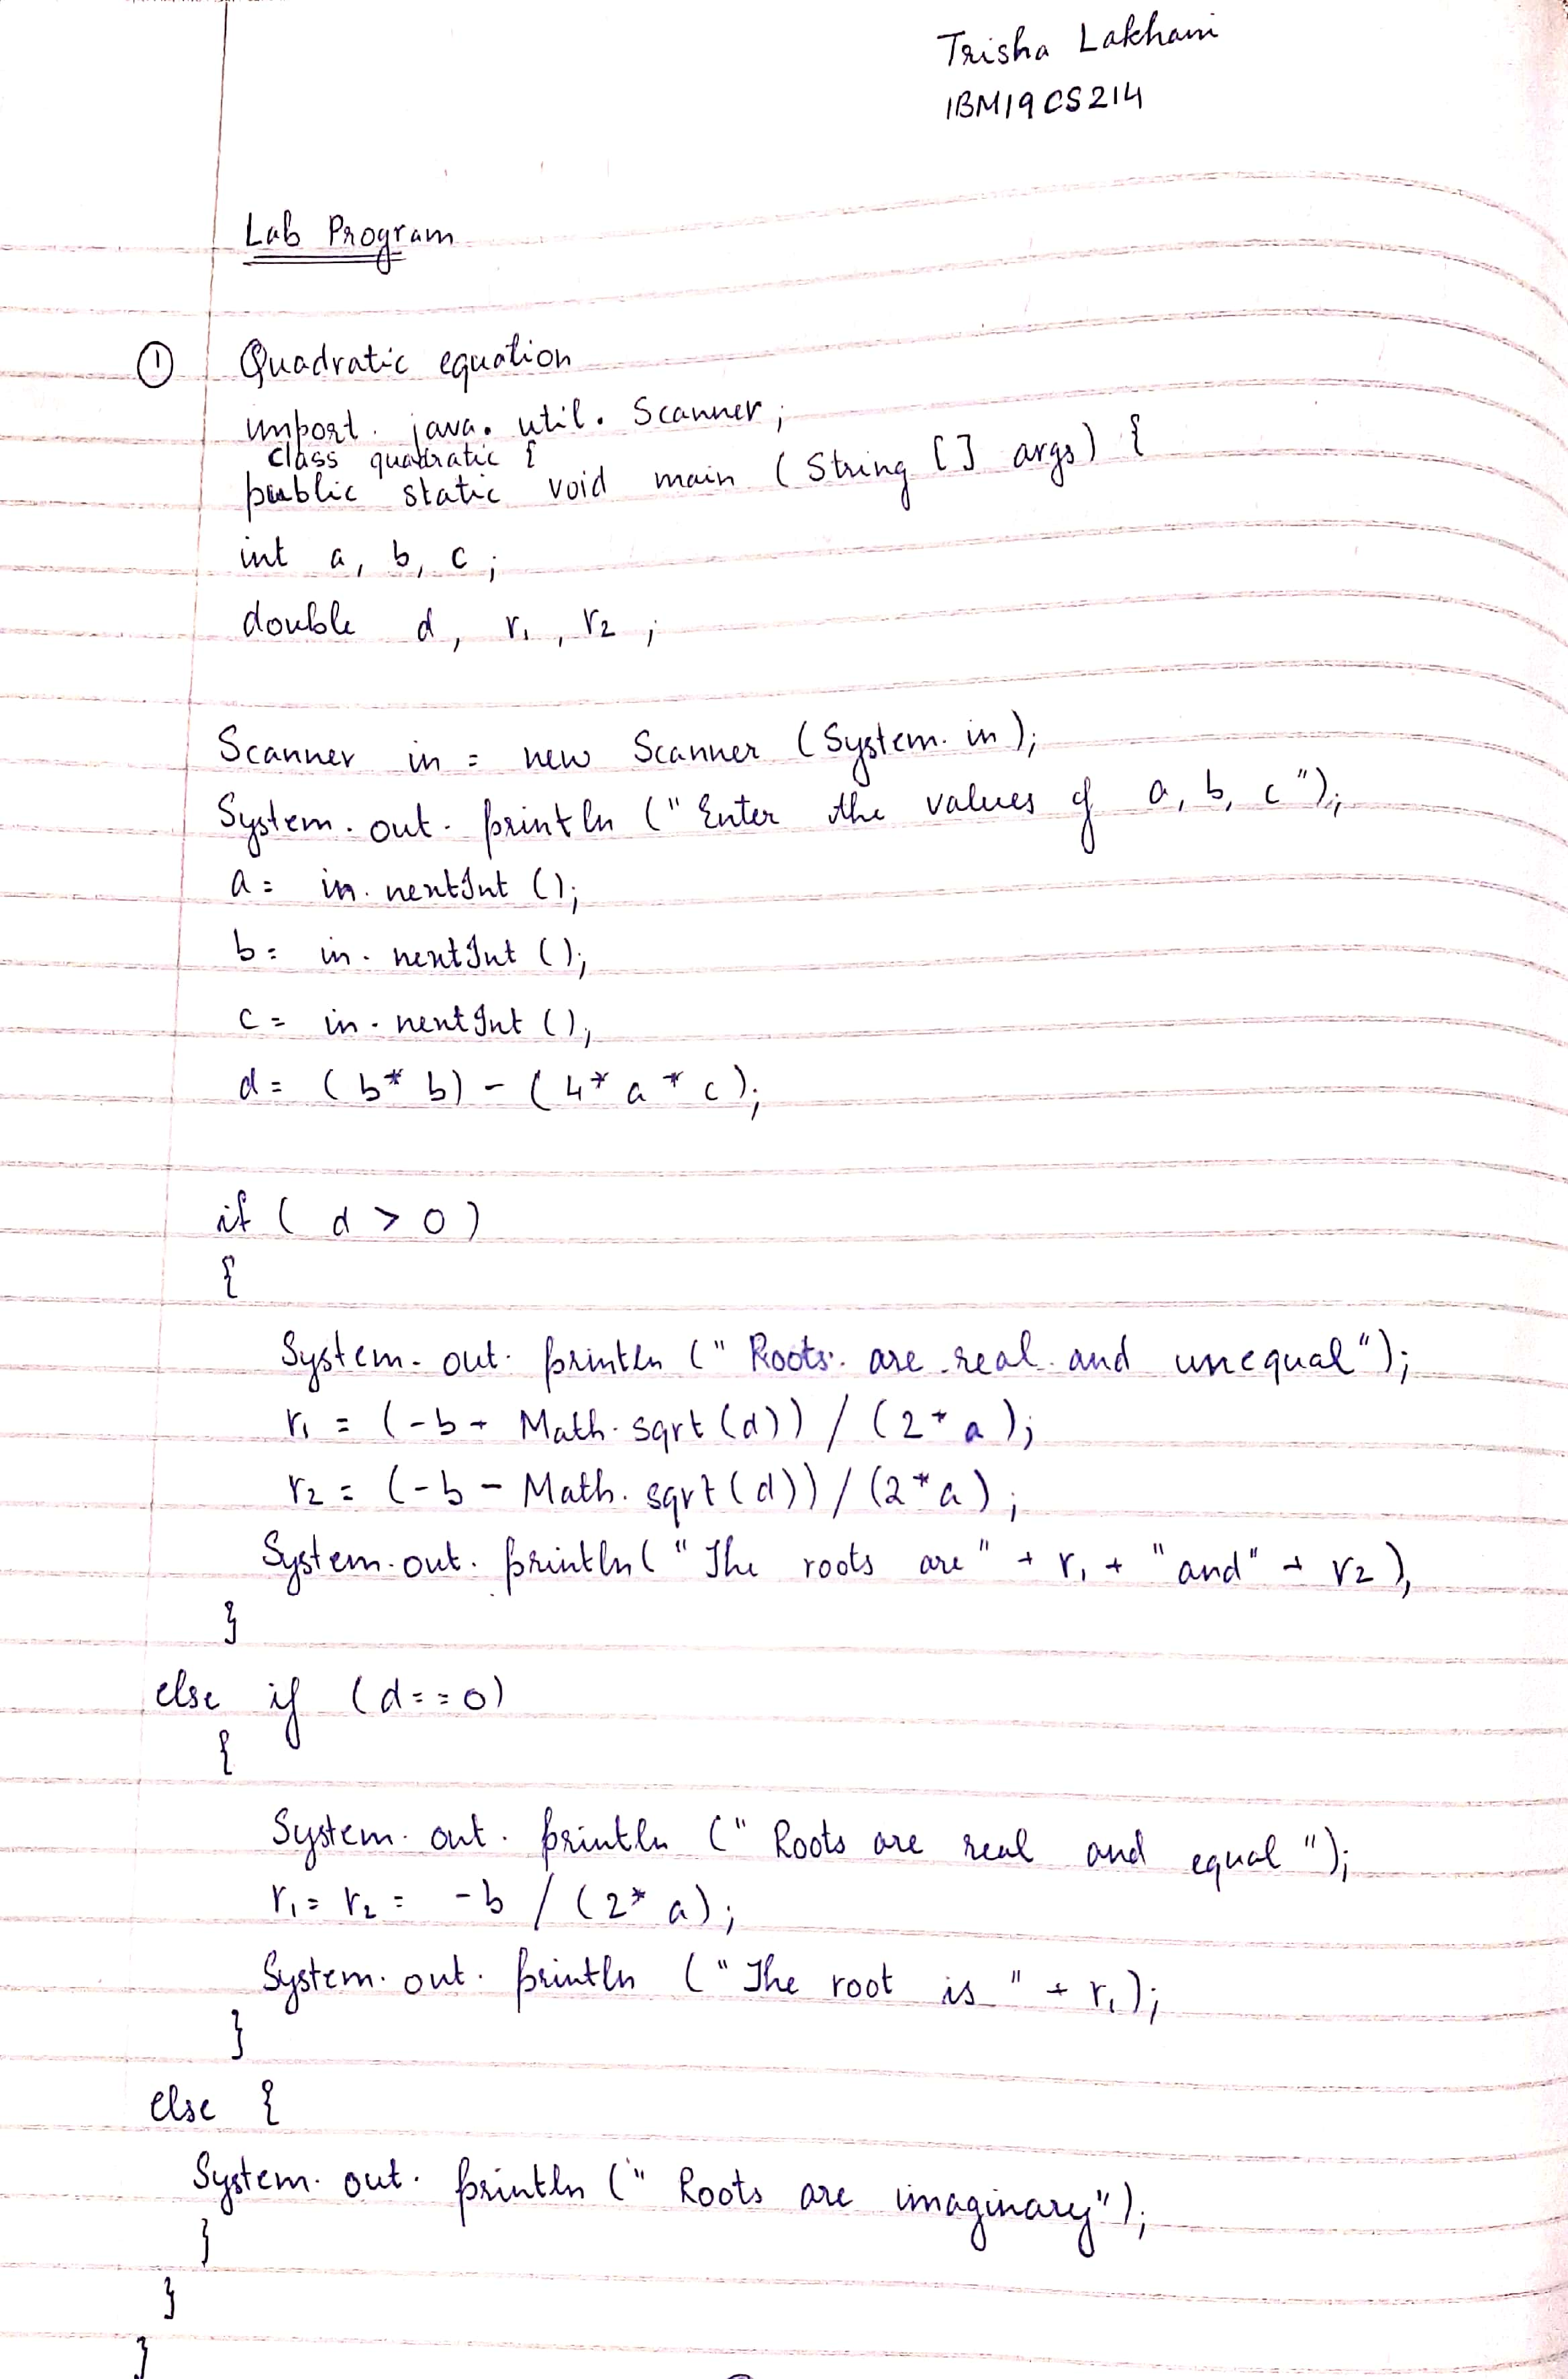 Trisha Lakhani
1BM19CS214
Lab Program
① Quadratic equation
import java.util.Scanner;
class quadratic {
public static void main (String [] args) {
int a, b, c;
double d, r1, r2;
Scanner in = new Scanner (System.in);
System.out.println ("Enter the values of a, b, c");
a = in.nextInt ();
b = in.nextInt ();
c = in.nextInt ();
d = (b* b) - (4* a * c);
if ( d > 0 )
{
System.out.println (" Roots are real and unequal");
r1 = (-b + Math.sqrt (d)) / (2 * a);
r2 = (-b - Math.sqrt (d)) / (2 * a);
System.out.println ("The roots are" + r1 + "and" + r2),
}
else if (d==0)
{
System.out.println (" Roots are real and equal ");
r1 = r2 = -b / (2* a);
System.out.println ("The root is " + r1);
}
else {
System.out.println (" Roots are imaginary");
}
}
}